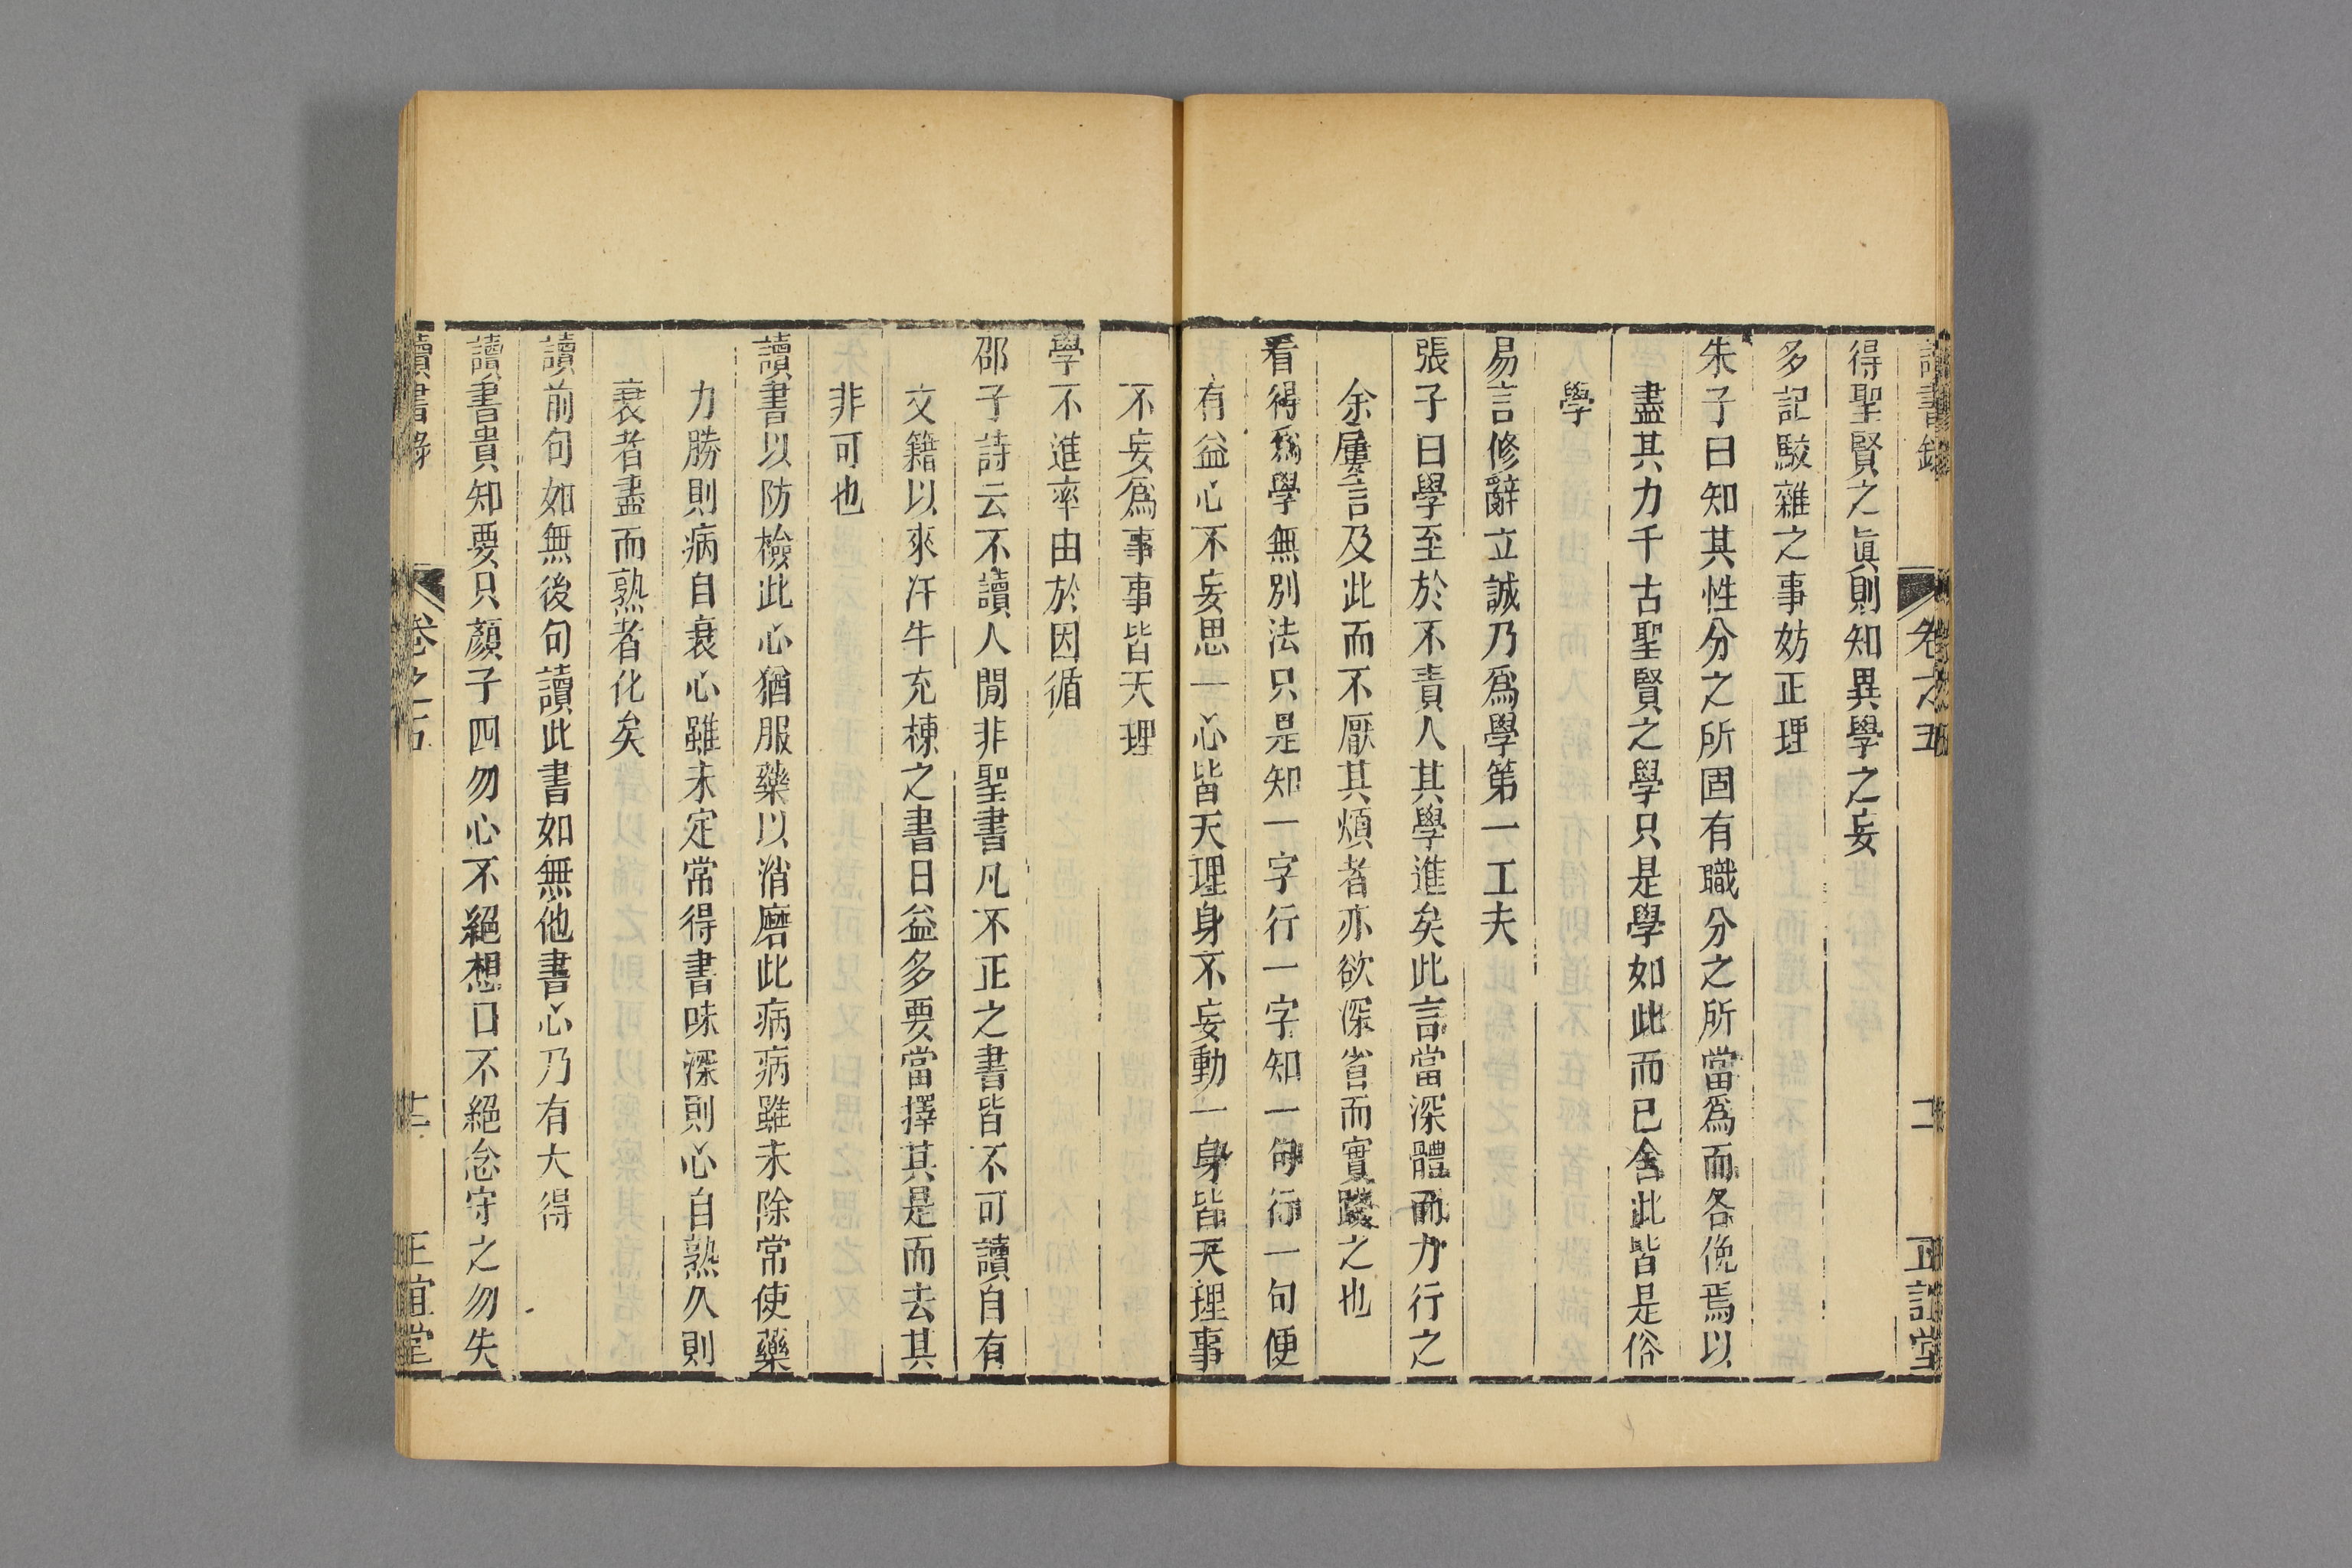 讀書錄 卷之五 二 正誼堂
得聖賢之眞則知異學之妄
多記駁雜之事妨正理
朱子曰知其性分之所固有職分之所當爲而各俛焉以
盡其力千古聖賢之學只是學如此而已舍此皆是俗
學
易言修辭立誠乃爲學第一工夫
張子曰學至於不責人其學進矣此言當深體而力行之
余屢言及此而不厭其煩者亦欲深省而實踐之也
看得爲學無別法只是知一字行一字知一句行一句便
有益心不妄思一心皆天理身不妄動一身皆天理事
不妄爲事事皆天理
學不進率由於因循
邵子詩云不讀人閒非聖書凡不正之書皆不可讀自有
文籍以來汗牛充棟之書日益多要當擇其是而去其
非可也
讀書以防檢此心猶服藥以消磨此病病雖未除常使藥
力勝則病自衰心雖未定常得書味深則心自熟久則
衰者盡而熟者化矣
讀前句如無後句讀此書如無他書心乃有大得
讀書貴知要只顏子四勿心不絕想口不絕念守之勿失
讀書錄 卷之五 正誼堂